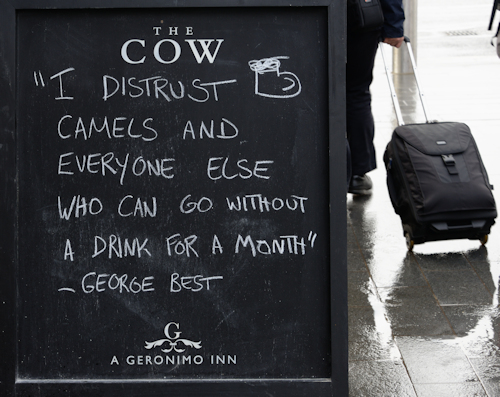 THE
COW
"I DISTRUST
CAMELS AND
EVERYONE ELSE
WHO CAN GO WITHOUT
A DRINK FOR A MONTH"
- GEORGE BEST
G
A GERONIMO INN